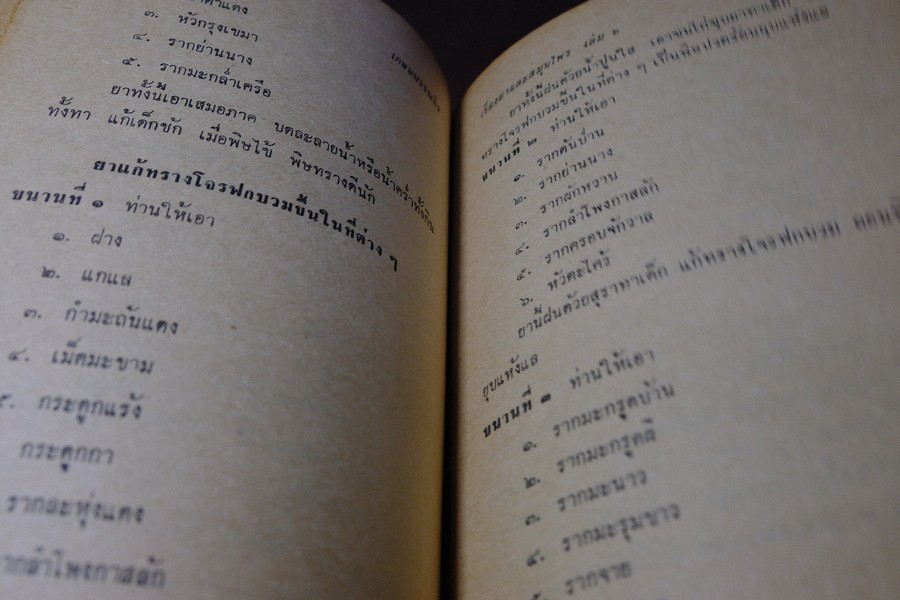 ๓. หัวกรุงเขมา
๔. รากย่านนาง
๕. รากมะกล่ำเครือ
ยาทั้งนี้เอาเสมอภาค บดละลายน้ำหรือน้ำคร่ำทั้งกิน
ทั้งทา แก้เด็กชัก เมื่อพิษไข้ พิษทรางตีนัก
ยาแก้ทรางโจรฟกบวมขึ้นในที่ต่าง ๆ
ขนานที่ ๑ ท่านให้เอา
๑. ฝาง
๒. แกแล
๓. กำมะถันแดง
๔. เม็ดมะขาม
๕. กระดูกแร้ง
กระดูกกา
รากละหุ่งแดง
รากลำโพงกาสลัก
เรื่องยาและสมุนไพร เล่ม ๒
ยาทั้งนี้ฝนด้วยน้ำปูนใส
ทรางโจรฟกบวมขึ้นในที่ต่าง ๆ
ขนานที่ ๒ ท่านให้เอา
๑. รากตันป่าน
๒. รากย่านนาง
๓. รากผักหวาน
๔. รากลำโพงกาสลัก
๕. รากครอบจักวาล
๖. หัวตะไคร้
ยานี้ฝนด้วยสุราทาเด็ก แก้ทรางโจรฟกบวม
ยุบแห้งแล
ขนานที่ ๓ ท่านให้เอา
๑. รากมะกรูดบ้าน
๒. รากมะกรูดผี
๓. รากมะนาว
๔. รากมะรุมขาว
รากจาย